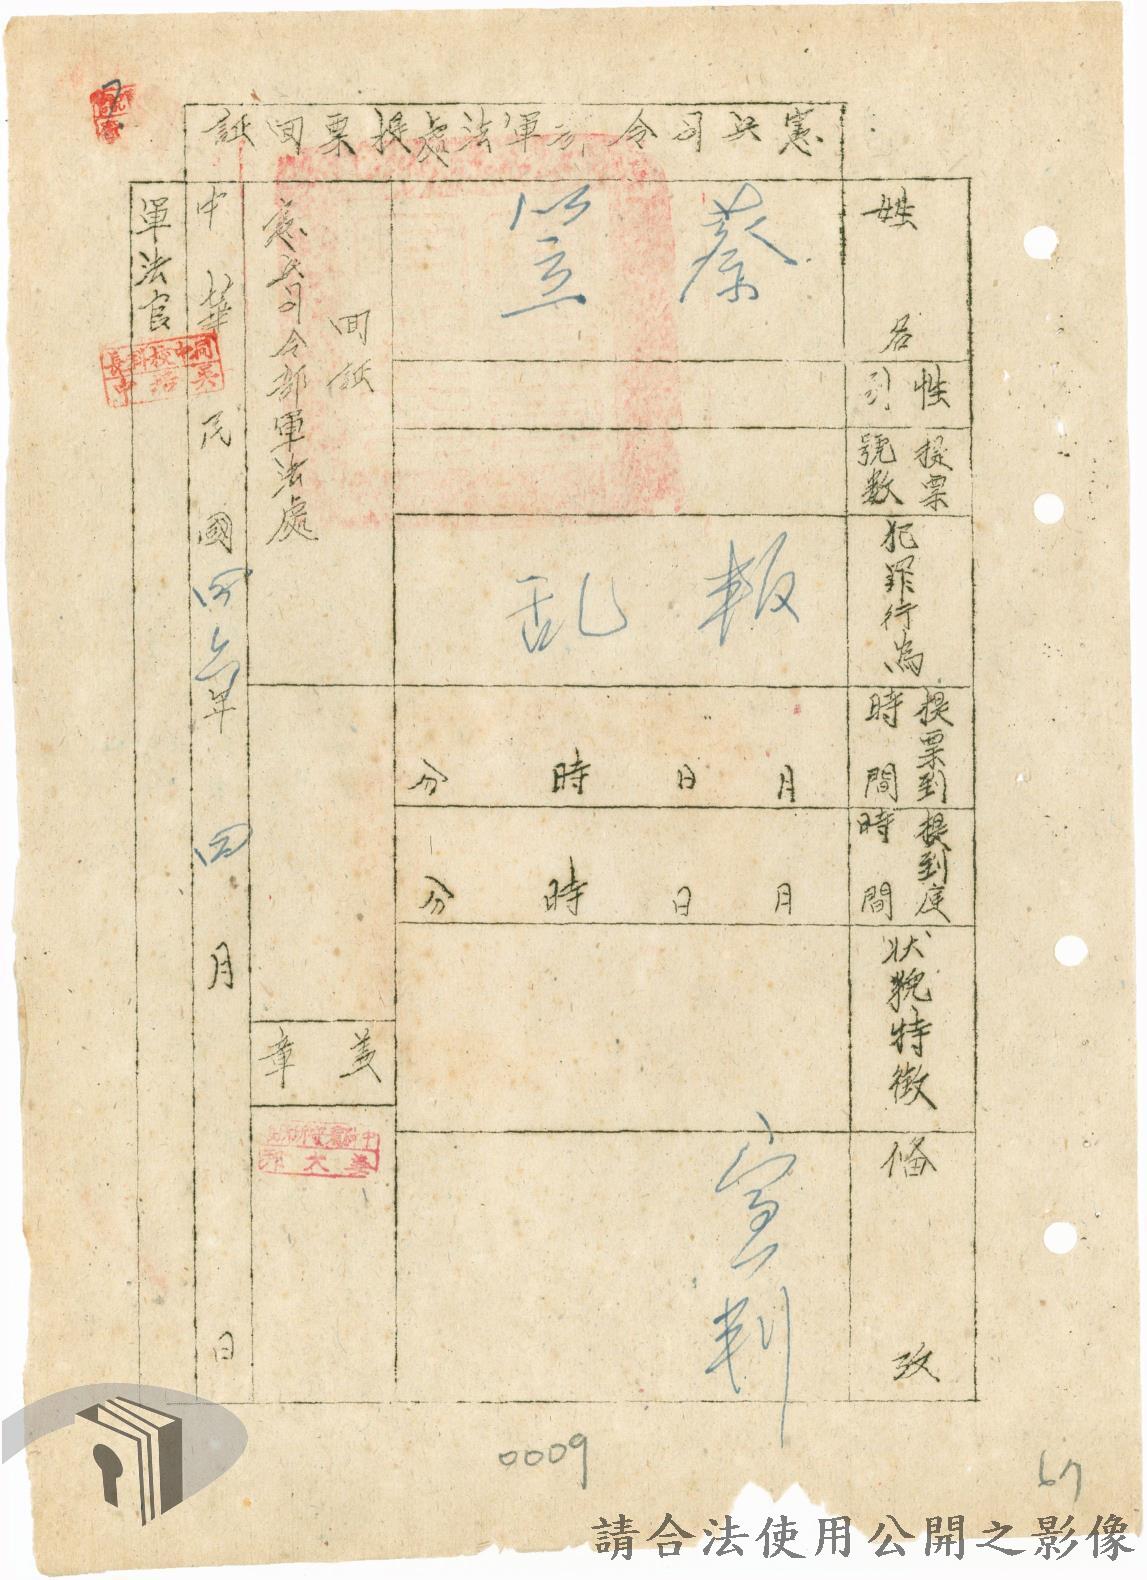 憲兵司令部軍法處提票回証
姓名
蔡笠
性別
提票號數
犯罪行為
叛乱
提票到時間
月 日 時 分
提到庭時間
月 日 時 分
狀貌特徵
備攷
宣判
回証
憲兵司令部軍法處
蓋章
中華民國四六年四月 日
軍法官
0009
67
請合法使用公開之影像